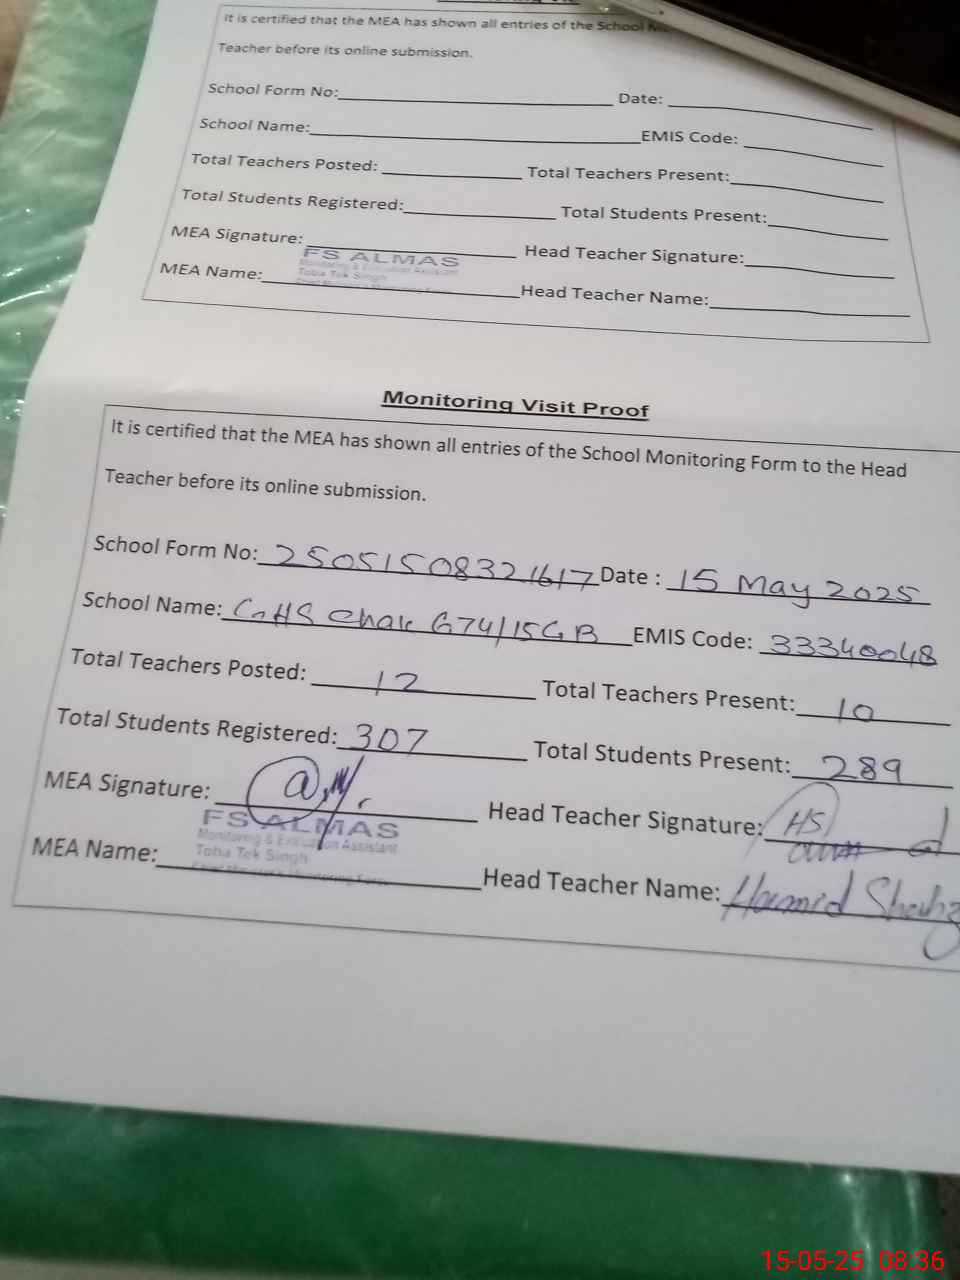 It is certified that the MEA has shown all entries of the School
Teacher before its online submission.
School Form No: Date:
School Name: EMIS Code:
Total Teachers Posted: Total Teachers Present:
Total Students Registered: Total Students Present:
MEA Signature: Head Teacher Signature:
FS ALMAS
Monitoring & Evaluation Assistant
Toba Tek Singh
MEA Name: Head Teacher Name:
Monitoring Visit Proof
It is certified that the MEA has shown all entries of the School Monitoring Form to the Head
Teacher before its online submission.
School Form No: 25051508321617 Date : 15 May 2025
School Name: GHS Chak 674/15GB EMIS Code: 33340048
Total Teachers Posted: 12 Total Teachers Present: 10
Total Students Registered: 307 Total Students Present: 289
MEA Signature: Head Teacher Signature: HS
FS ALMAS
Monitoring & Evaluation Assistant
Toba Tek Singh
MEA Name: Head Teacher Name:
15-05-25 08:36